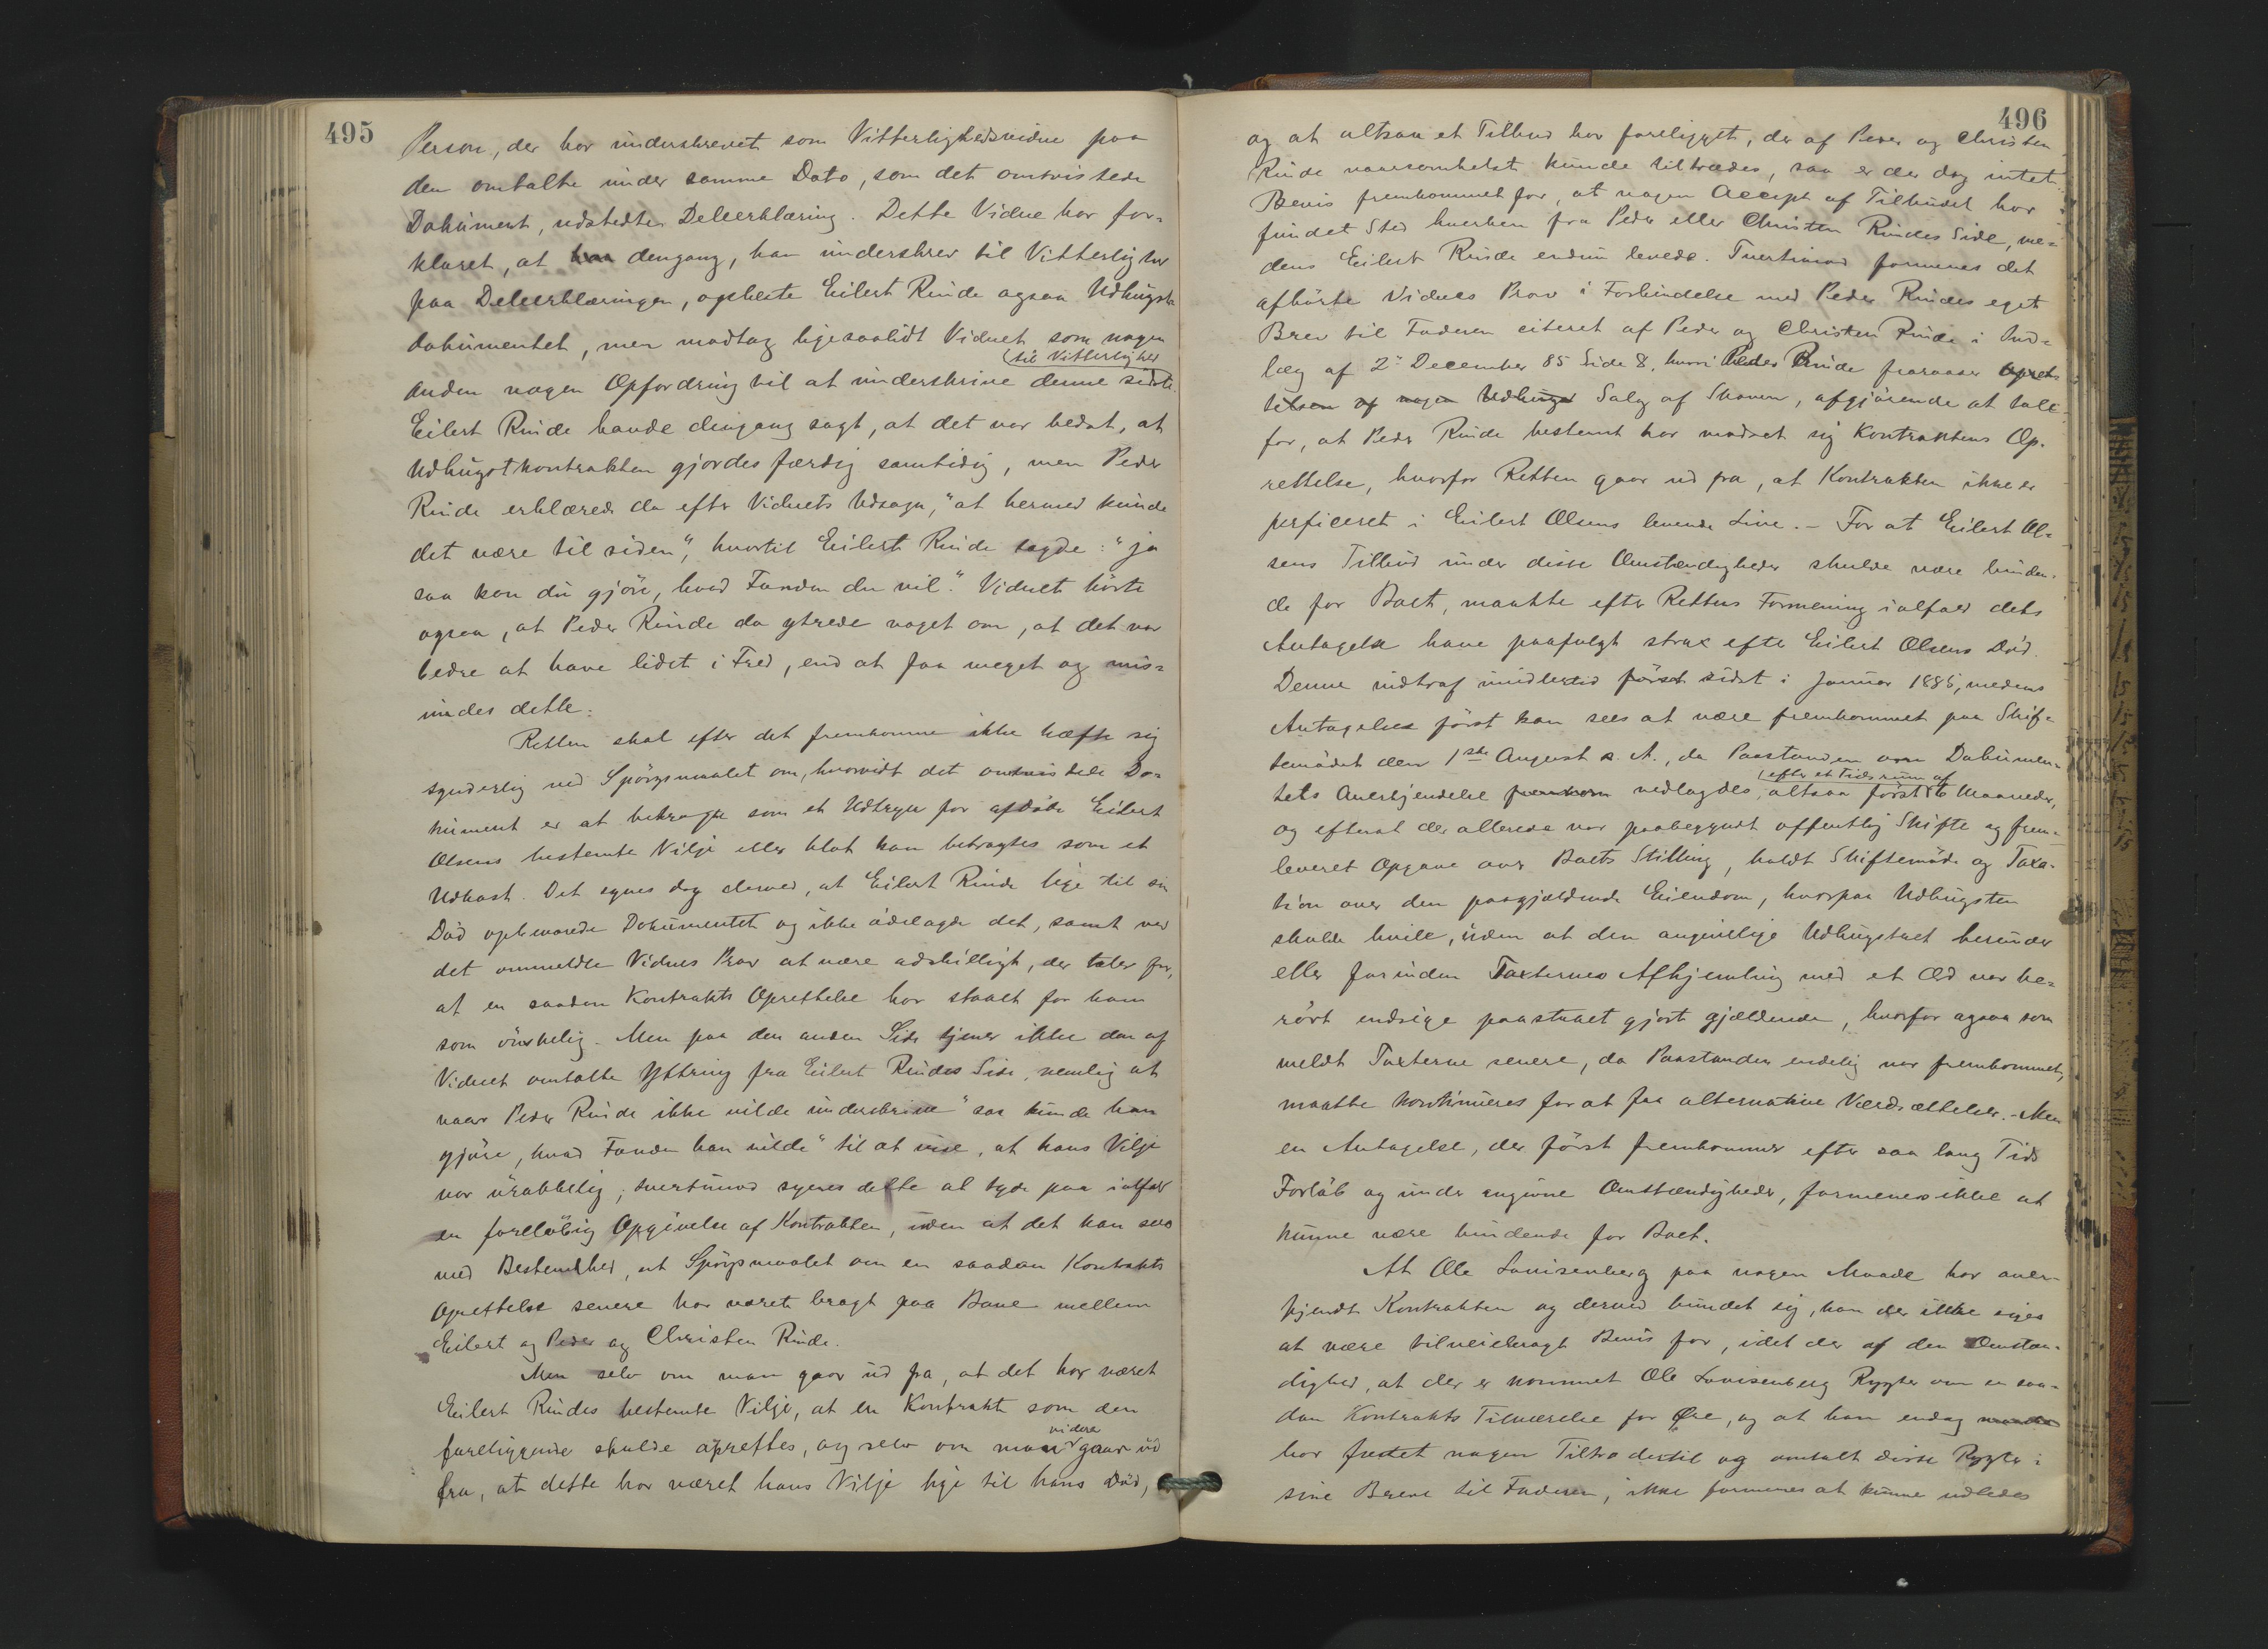 495
Person, der har underskrevet som Vitterlighedsvidne paa
den omtalte under samme Dato, som det omtvistede
Dokument, udstedte Deleerklæring. Dette Vidne har for-
klaret, at han dengang, han underskrev til Vitterlighed
paa Deleerklæringen, oplæste Eilert Rinde ogsaa Udhugst-
dokumentet, men modtog ligesaalidt Vidnet som nogen
(til Vitterlighed
anden nogen Opfordring til at underskrive denne sidste.
Eilert Rinde havde dengang sagt, at det var bedst, at
Udhugstkontrakten gjordes færdig samtidig, men Peder
Rinde erklærede da efter Vidnets Udsagn, "at hermed kunde
det være til siden", hvortil Eilert Rinde sagde: "ja
saa kan du gjöre, hvad Fanden du vil". Vidnet hörte
ogsaa, at Peder Rinde da ytrede noget om, at det var
bedre at have lidet i Fred, end at faa meget og mis-
undes dette.
Retten skal efter det fremkomne ikke hæfte sig
synderlig ved Spörgsmaalet om, hvorvidt det omtvistede Do-
kument er at betragte som et Udtryk for afdöde Eilert
Olsens bestemte Vilje eller blot kan betragtes som et
Udkast. Det synes dog derved, at Eilert Rinde lige til sin
Död opbevarede Dokumentet og ikke ödelagde det, samt ved
det ommeldte Vidnes Prov at være adskilligt, der taler for,
at en saadan Kontrakts Oprettelse har staaet for ham
som önskelig. Men paa den anden Side tjener ikke den af
Vidnet omtalte Yttring fra Eilert Rindes Side, nemlig at
naar Peder Rinde ikke vilde underskrive "saa kunde han
gjöre, hvad Fanden han vilde" til at vise, at hans Vilje
var urokkelig; tvertimod synes dette at tyde paa ialfald
en foreløbig Opgivelse af Kontrakten, uden at det kan sees
med Bestemthed, at Spörgsmaalet om en saadan Kontrakts
Oprettelse senere har været bragt paa Bane mellem
Eilert og Peder og Christen Rinde.
Men selv om man gaar ud fra, at det har været
Eilert Rindes bestemte Vilje, at en Kontrakt som den
videre
foreliggende skulde oprettes, og selv om man gaar ud
fra, at dette har været hans Vilje lige til hans Död,
496
og at altsaa et Tilbud har foreligget, der af Peder og Christen
Rinde naarsomhelst kunde tiltrædes, saa er der dog intet
Bevis fremkommet for, at nogen Accept af Tilbudet har
fundet Sted hverken fra Peder eller Christen Rindes Side, me-
dens Eilert Rinde endnu levede. Tvertimod formenes det
afhörte Vidnes Prov i Forbindelse med Peder Rindes eget
Brev til Faderen citeret af Peder og Christen Rinde i Ind-
læg af 2den December 85 Side 8, hvori Peder Rinde fraraader Opret-
telsen af nogen Udhugst Salg af Skoven, afgjörende at tale
for, at Peder Rinde bestemt har modsat sig Kontraktens Op-
rettelse, hvorfor Retten gaar ud fra, at Kontrakten ikke er
perficeret i Eilert Olsens levende Live. - For at Eilert Ol-
sens Tilbud under disse Omstændigheder skulde være binden-
de for Boet, maatte efter Rettens Formening ialfald dets
Antagelse have paafulgt strax efter Eilert Olsens Död.
Denne indtraf imidlertid först sidst i Januar 1885, medens
Antagelsen först kan sees at være fremkommet paa Skif-
temödet den 1ste August s. A., da Paastanden om Dokumen-
(efter et Tidsrum af
tets Anerkjendelse fremkom nedlagdes, altsaa först 6 Maaneder,
og efterat der allerede var paabegyndt offentlig Skifte og frem-
leveret Opgave over Boets Stilling, holdt Skiftemöde og Taxa-
tion over den paagjældende Eiendom, hvorpaa Udhugsten
skulde hvile, uden at den angivelige Udhugstret herunder
eller forinden Taxternes Afhjemling med et Ord var be-
rört endsige paastaaet gjort gjældende, hvorfor ogsaa som
meldt Taxterne senere, da Paastanden endelig var fremkommet,
maatte kontinueres for at faa alternative Værdsættelser. - Men
en Antagelse, der först fremkommer efter saa lang Tids
Forløb og under angivne Omstændigheder, formenes ikke at
kunne være bindende for Boet.
At Ole Louisenberg paa nogen Maade har aner-
kjendt Kontrakten og derved bundet sig, kan der ikke siges
at være tilveiebragt Bevis for, idet der af den Omstæn-
dighed, at der er kommet Ole Louisenberg Rygter om en saa-
dan Kontrakts Tilværelse for Øre, og at han endog
har fæstet nogen Tiltro dertil og omtalt disse Rygter i
sine Breve til Faderen, ikke formenes at kunne udledes